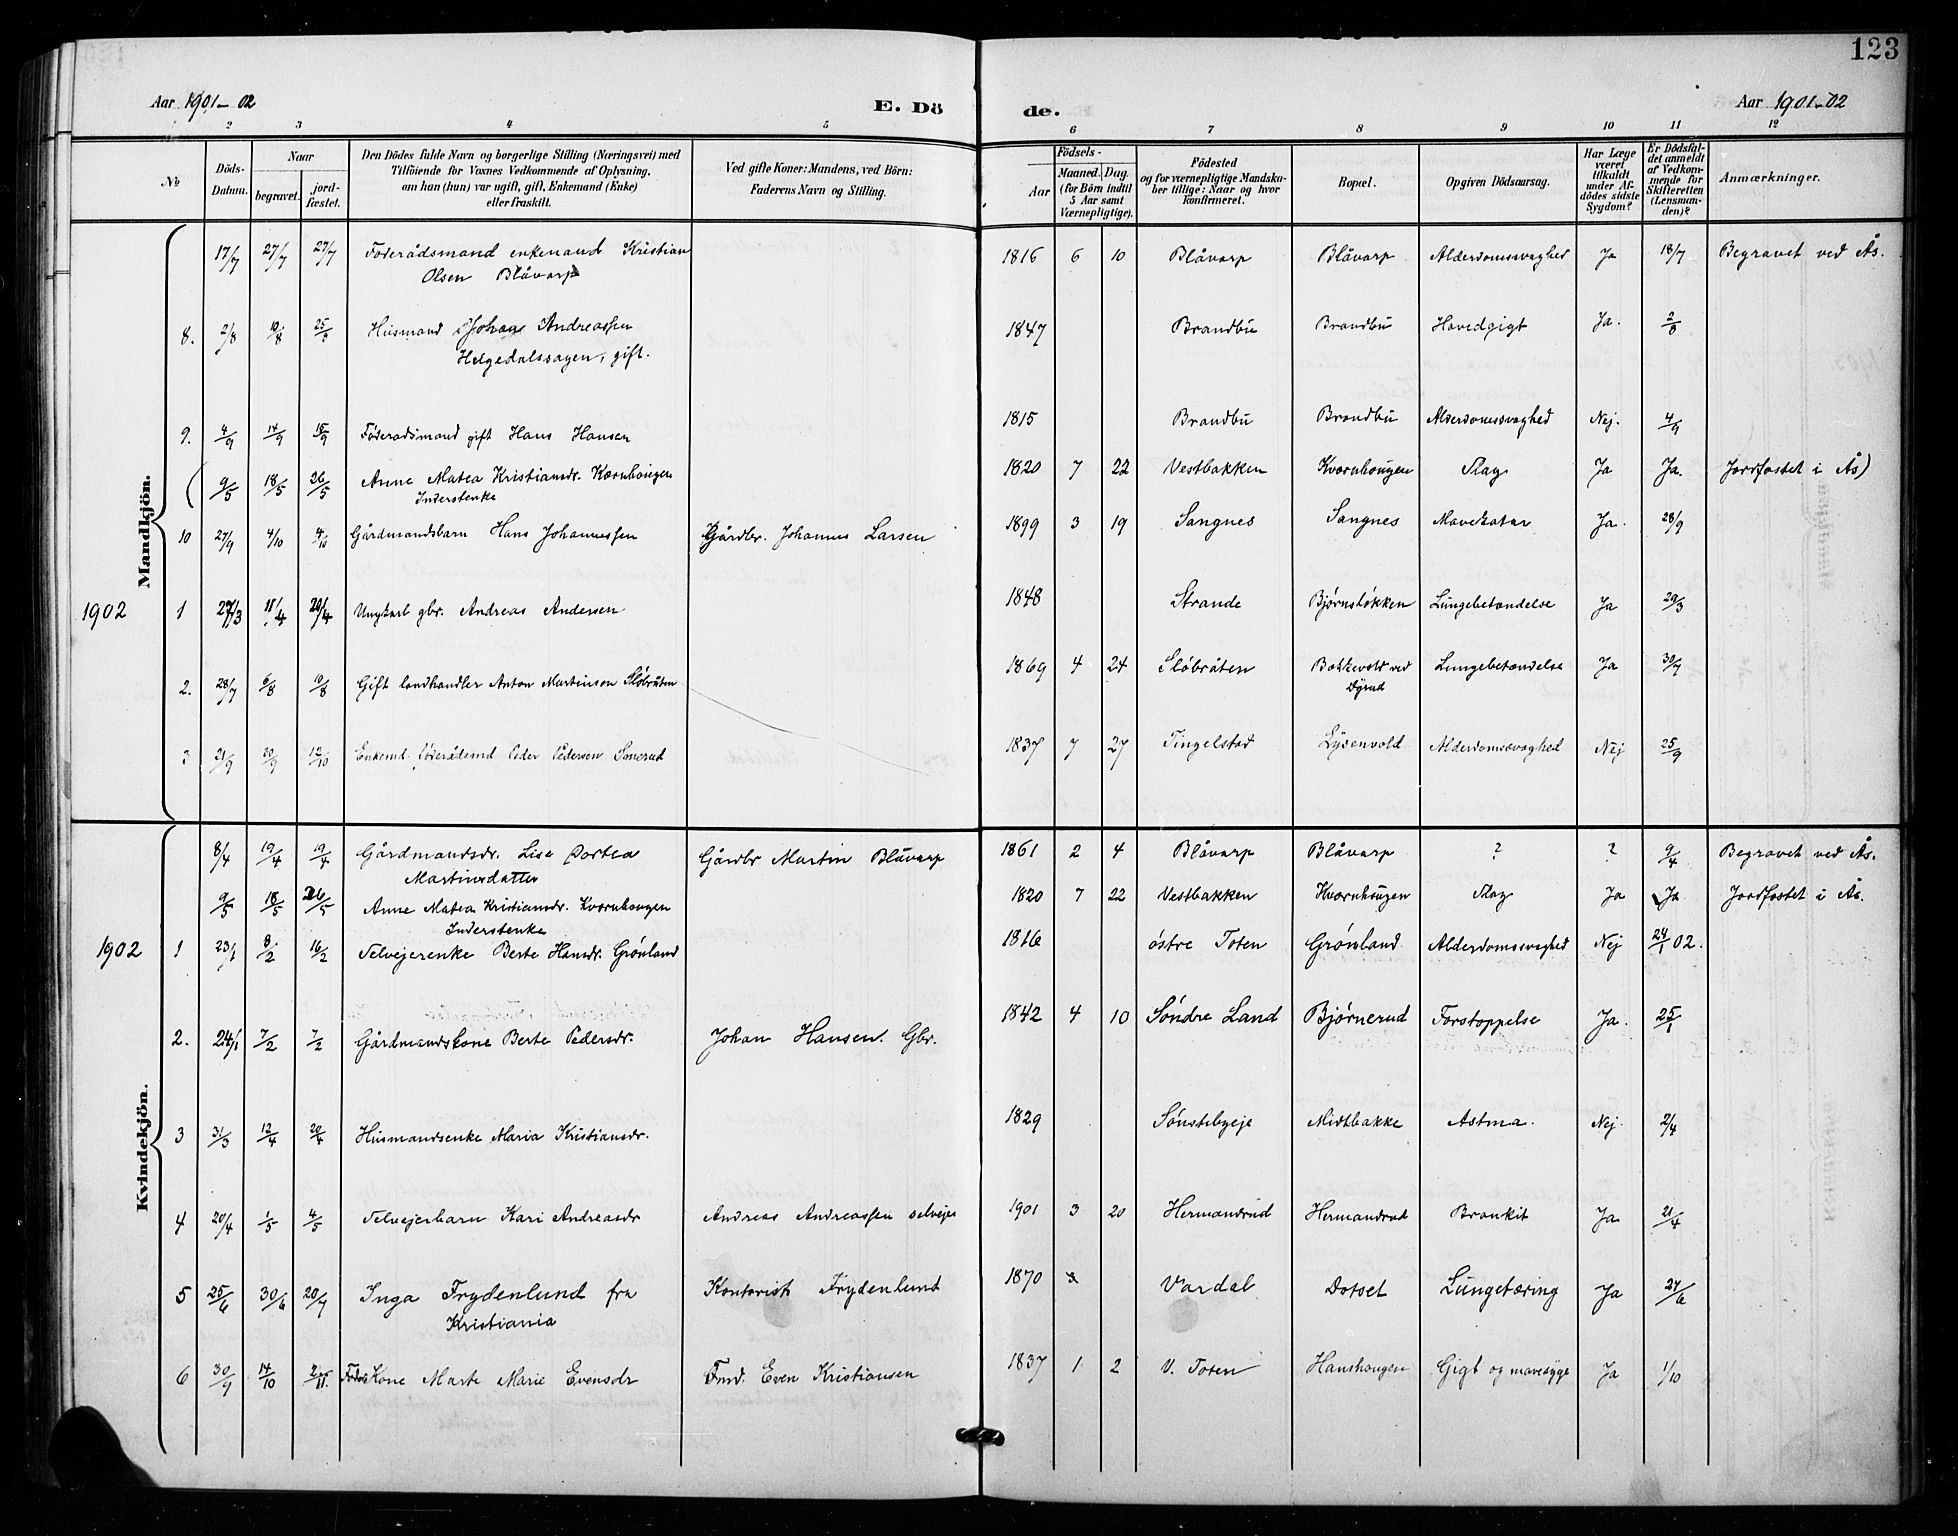 123
Aar 1901-02 E. Dö de. Aar 1901-02
2 3 4 5 6 7 8 9 10 11 12
No
Döds-Datum.
Naar
begravet. jord-fæstet.
Den Dödes fulde Navn og borgerlige Stilling (Næringsvei) med
Tilföiende for Voxnes Vedkommende af Oplysning,
om han (hun) var ugift, gift, Enkemand (Enke)
eller fraskilt.
Ved gifte Koner: Mandens, ved Börn:
Faderens Navn og Stilling.
Födsels-
Aar Maaned. Dag.
(for Börn indtil
5 Aar samt
Værnepligtige).
Födested
og for værnepligtige Mandska-
ber tillige: Naar og hvor
konfirmeret.
Bopæl.
Opgiven Dödsaarsag.
Har Læge
været
tilkaldt
under Af-
dödes sidste
Sygdom?
Er Dödsfal-
det anmeldt
af Vedkom-
mende for
Skifteretten
(Lensman-
den)?
Anmærkninger.
Mandkjön.
17/7 27/7 27/7 Føderådsmand enkemand Kristian 1816 6 10 Blåvarp Blåvarp Alderdomssvaghed Ja 18/7 Begravet ved Ås.
Olsen Blåvarp
8. 2/8 10/8 25/8 Husmand Johans Andreassen 1847 Brandbu Brandbu Hovedgigt Ja. 2/8
Helgedalshagen, gift.
9. 4/9 14/9 15/9 Føderadsmand gift Hans Hansen 1815 Brandbu Brandbu Alderdomssvaghed Nej. 4/9
( 9/5 18/5 26/5 Anne Matea Kristiansdr. Kværnhaugen 1820 7 22 Vestbakken Kværnhougen Slag Ja Ja. Jordfæstet i Ås)
Inderstenke
10 27/9 4/10 4/10 Gårdmandsbarn Hans Johannessen Gårdbr. Johannes Larsen 1899 3 19 Sangnes Sangnes Mavekatar Ja. 28/9
1902 1 27/3 11/4 20/4 Ungkarl gbr. Andreas Andersen 1848 Strande Bjørnsløkken Lungebetændelse Ja 29/3
2. 28/7 6/8 10/8 Gift landhandler Anton Martinson Sløbråten 1869 4 24 Sløbråten Bakkevold ved Lungebetændelse Ja 30/7
Dyrud
3 21/9 20/9 12/10 Enkemd. føderådsmd Peder Pedersen Sonerud 1837 7 27 Tingelstad Lysenvold Alderdomssvaghed Nej 25/9
Kvindekjön.
8/4 19/4 19/4 Gårdmandsdr. Lise Dortea Gårdbr Martin Blåvarp 1861 2 4 Blåvarp Blåvarp ? ? 9/4 Begravet ved Ås.
Martinsdatter
9/5 18/5 26/5 Anne Matea Kristiansdr. Kværnhougen 1820 7 22 Vestbakken Kværnhougen Slag Ja Ja Jordfæstet i Ås.
Inderstenke
1902 1 23/1 8/2 16/2 Selvejerenke Berte Hansdr. Grønland 1816 østre Toten Grønland Alderdomssvaghed Nej 24/1 02.
2. 24/1 7/2 7/2 Gårdmandskone Berte Pedersdr. Johan Hansen. Gbr. 1842 4 10 Søndre Land Bjørnerud Forstoppelse Ja. 25/1
3 31/3 12/4 20/4 Husmandsenke Maria Kristiansdr. 1829 Sønstebyeje Midtbakke Astma. Nej. 2/4
4 20/4 1/5 4/5 Selvejerbarn Kari Andreasdr Andreas Andreassen selvejer 1901 3 20 Hermandrud Hermandrud Bronkit Ja 21/4
5 25/6 30/6 20/7 Inga Frydenlund fra Kontorist Frydenlund 1870 Vardal Dotset Lungetæring Ja 27/6
Kristiania
6 30/9 14/10 2/11. Kone Marte Marie Evensdr Fmd. Even Kristiansen 1837 1 2 V. Toten Hanshougen Gigt og mavesyge Ja 1/10